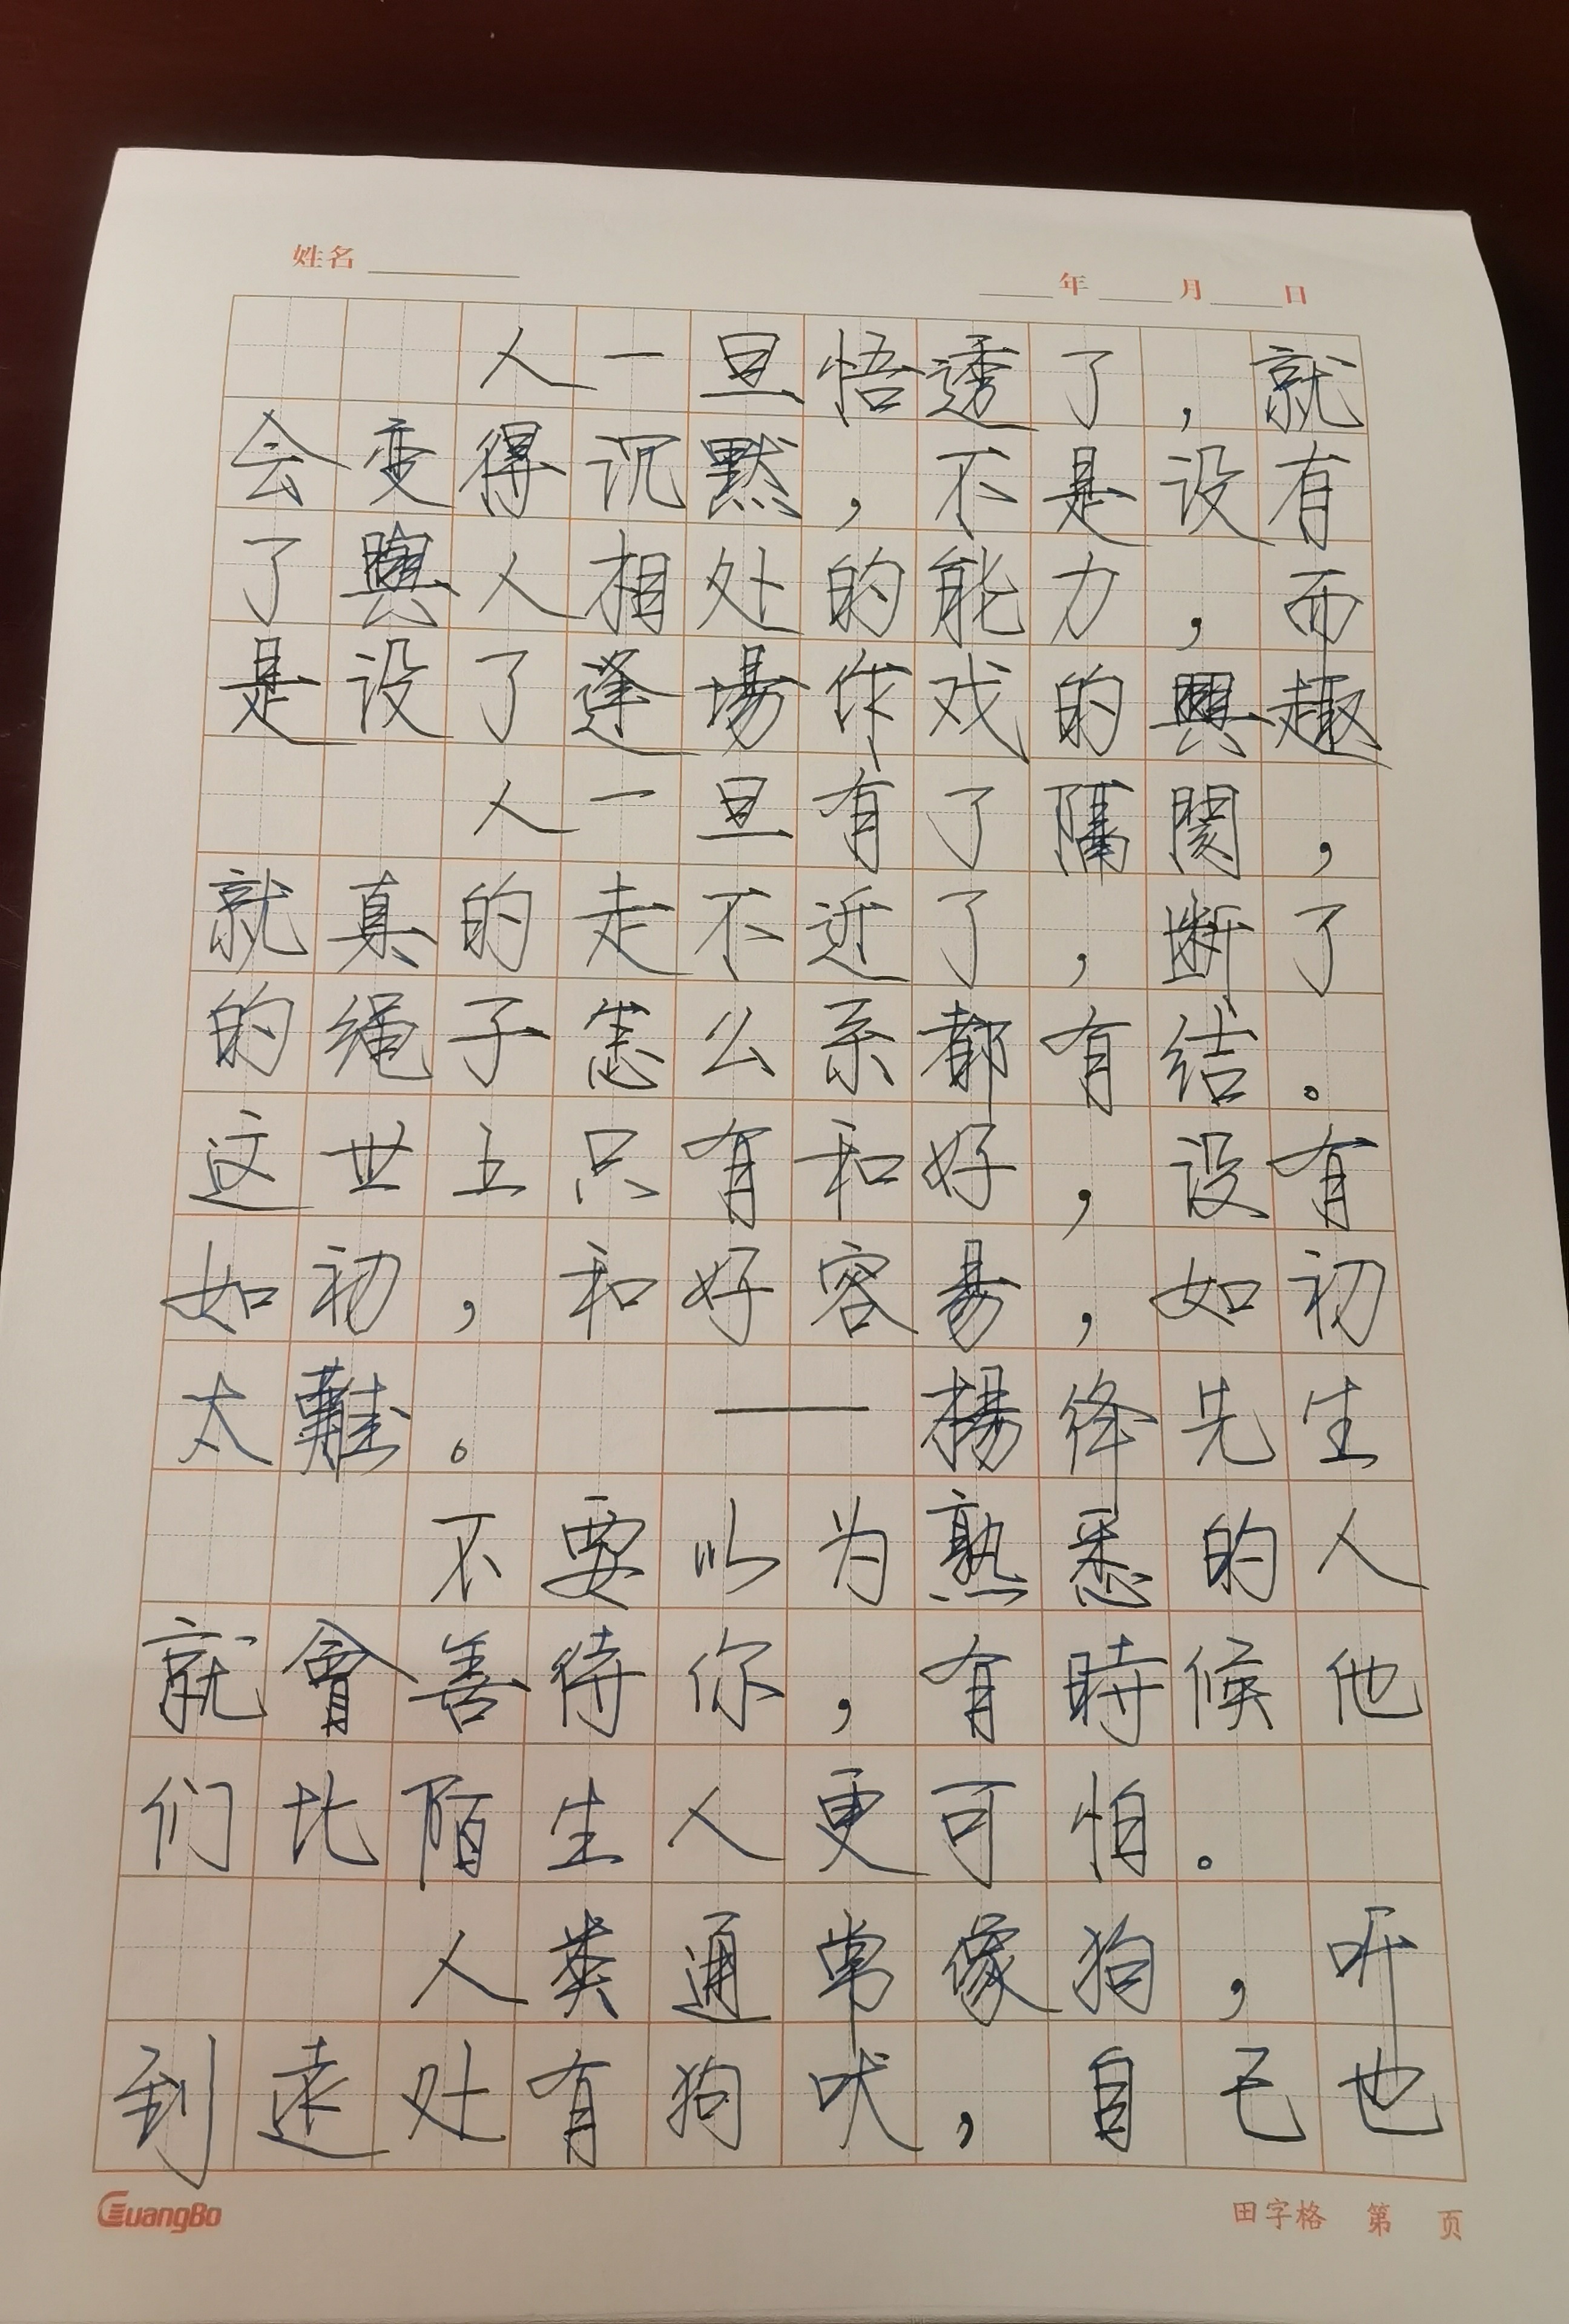 姓名
年 月 日
人一旦悟透了,就
会变得沉默,不是没有
了與人相处的能力,而
是没了逢場作戏的興趣
人一旦有了隔閡,
就真的走不近了,断了
的绳子怎么系都有结。
这世上只有和好,没有
如初,和好容易,如初
太難。 ——楊绛先生
不要以为熟悉的人
就會善待你,有時候他
们比陌生人更可怕。
人类通常像狗,听
到远处有狗吠,自己也
GuangBo
田字格 第 页